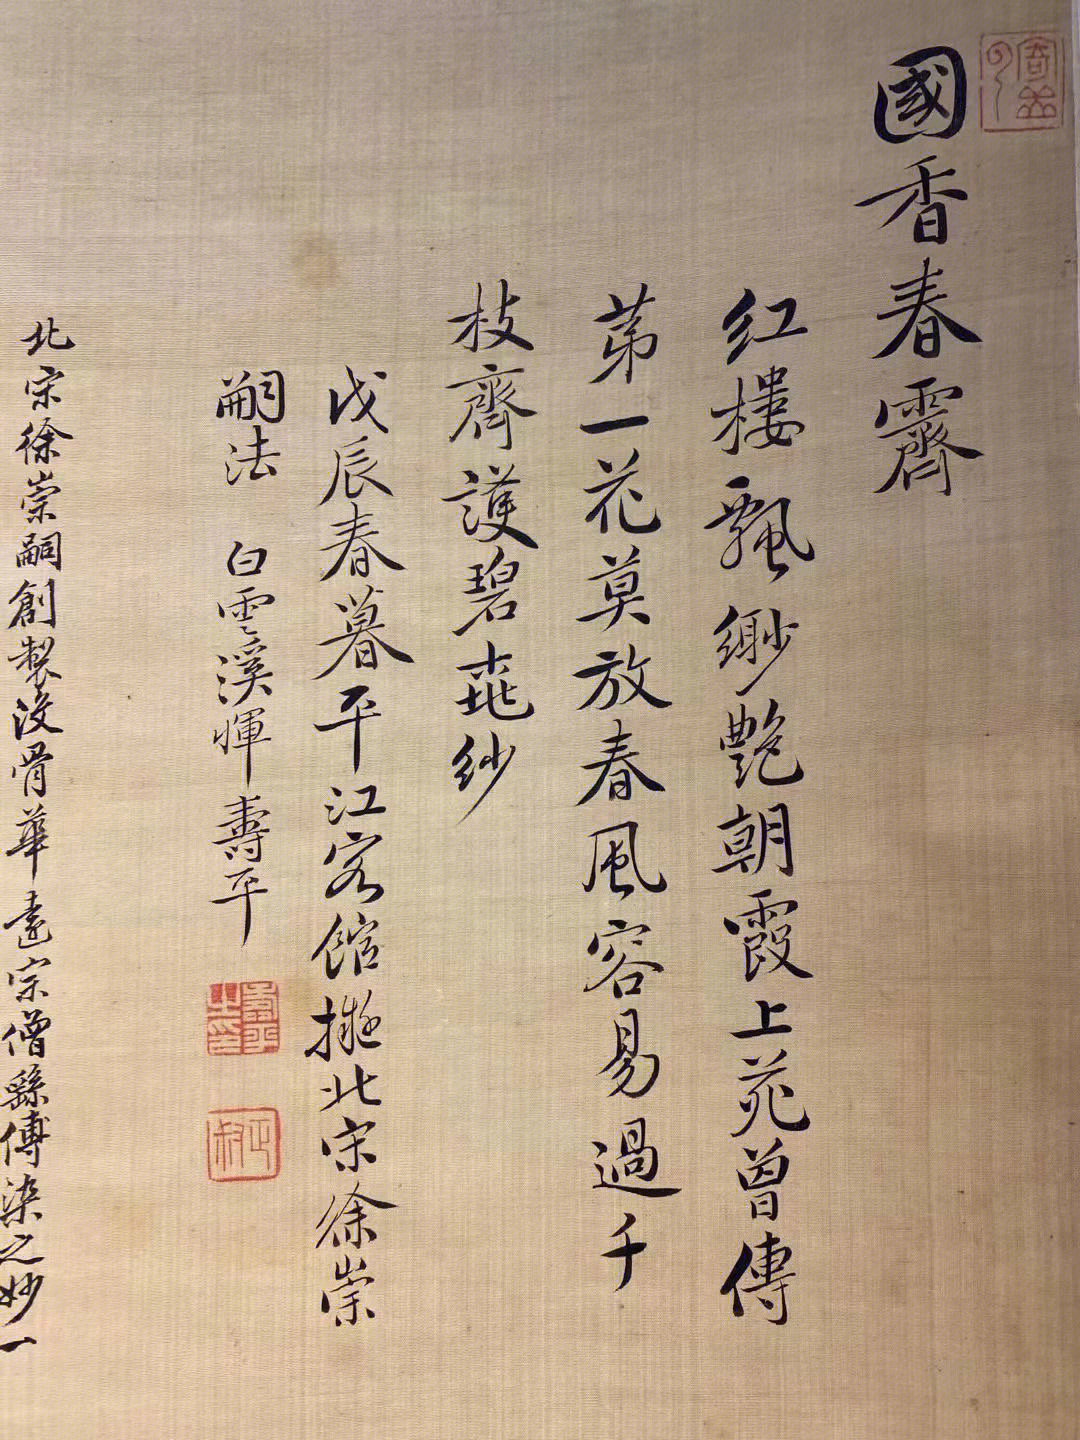 國香春霽
红樓飄緲艷朝霞上苑曾傳
苐一花莫放春風容易過千
枝齊護碧紗
戊辰春暮平江客館擬北宋徐崇
嗣法 白雲溪惲壽平
壽平之印
正叔
北宋徐崇嗣創製沒骨華遠宗僧繇傅染之妙一